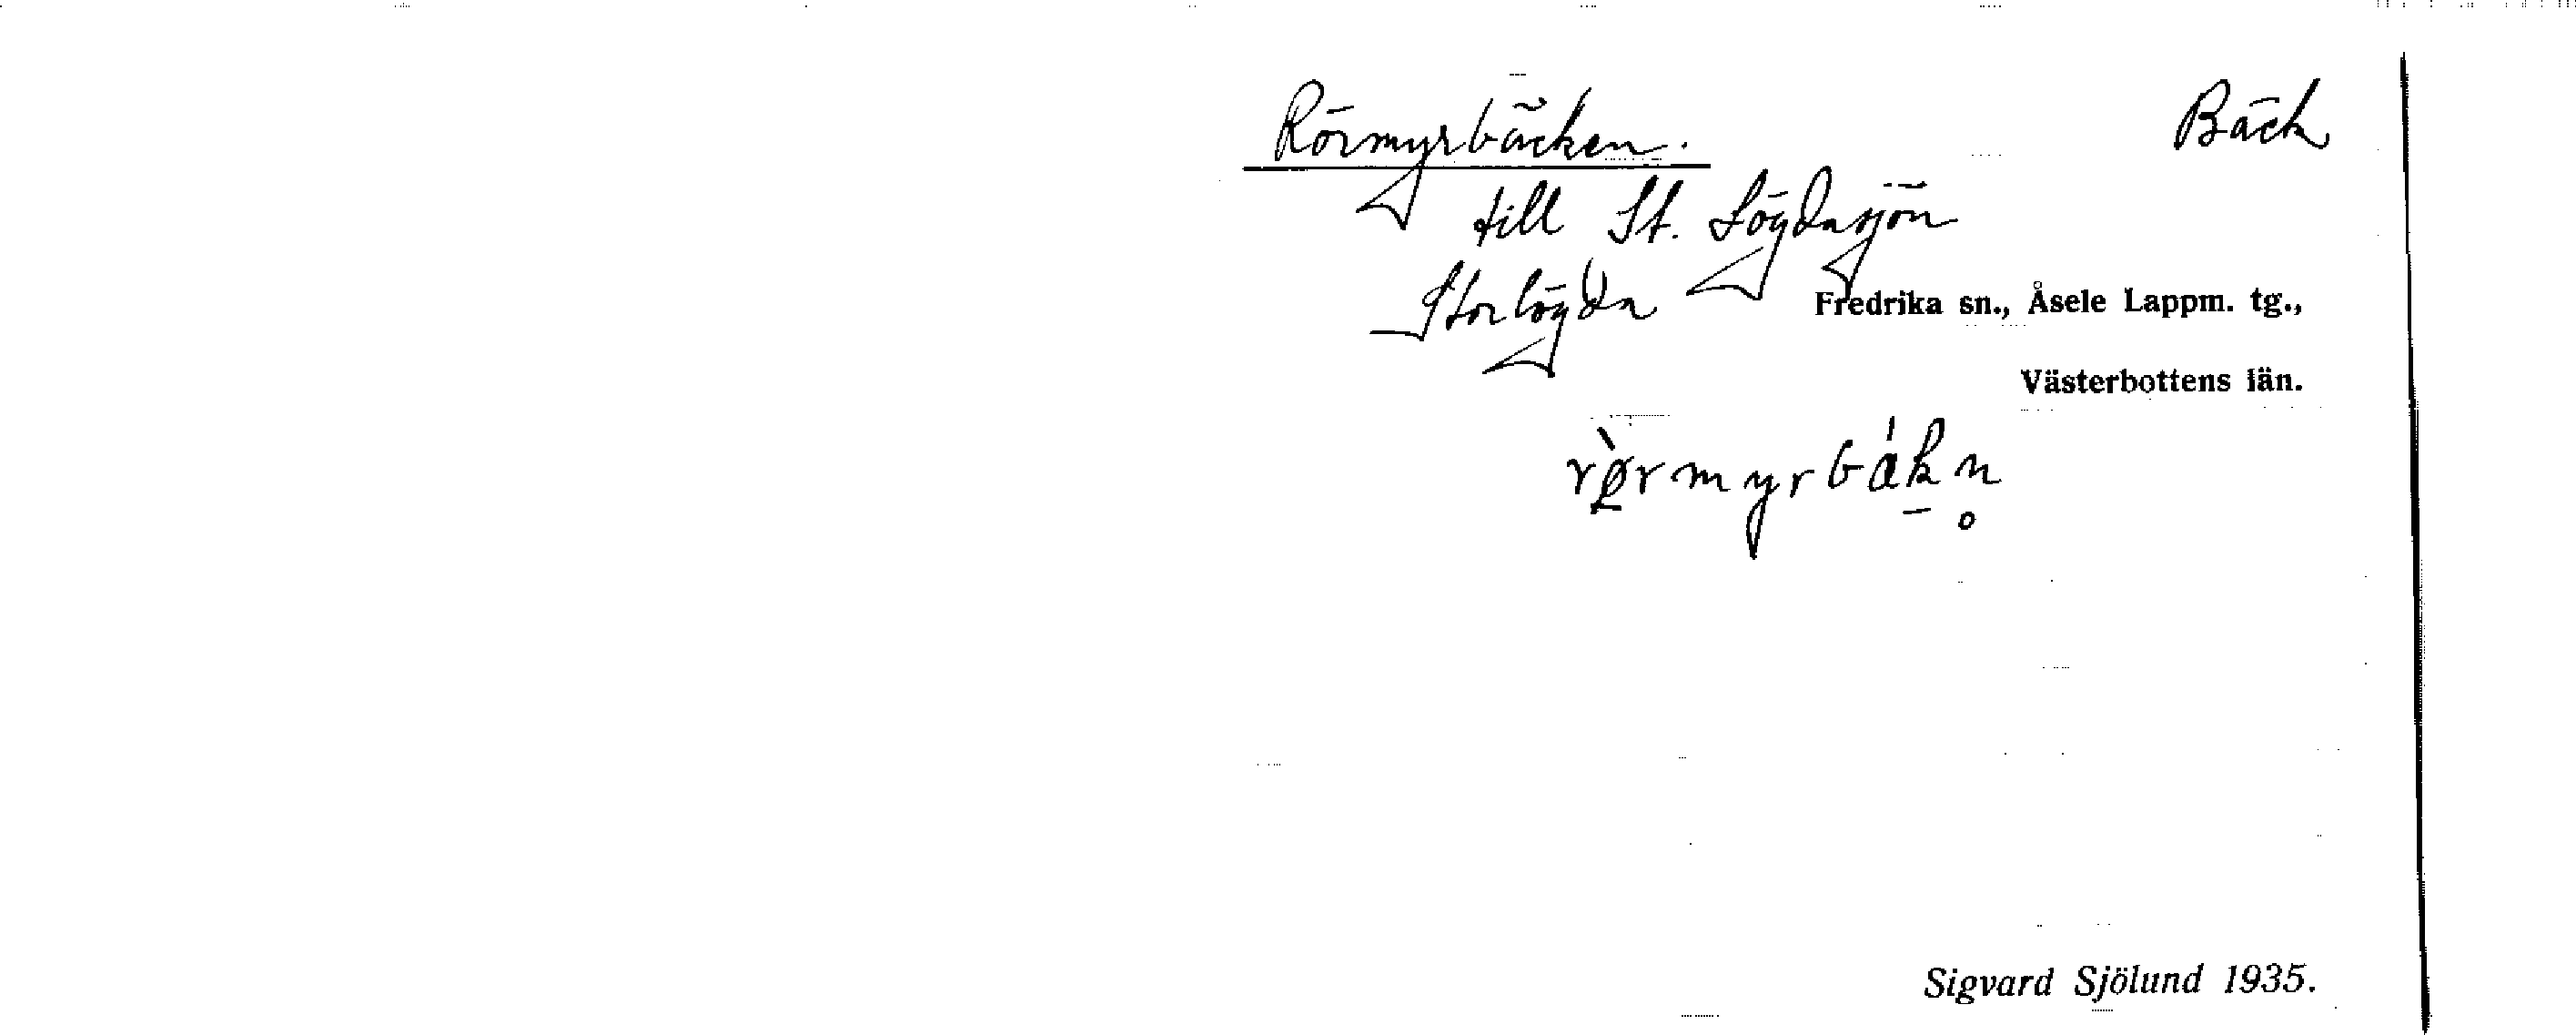 Rörmyrbäcken. Bäck
till St. Lögdasjön
Storlögda Fredrika sn., Åsele Lappm. tg.,
Västerbottens län.
rø̀rmyrbák̠n̥
Sigvard Sjölund 1935.